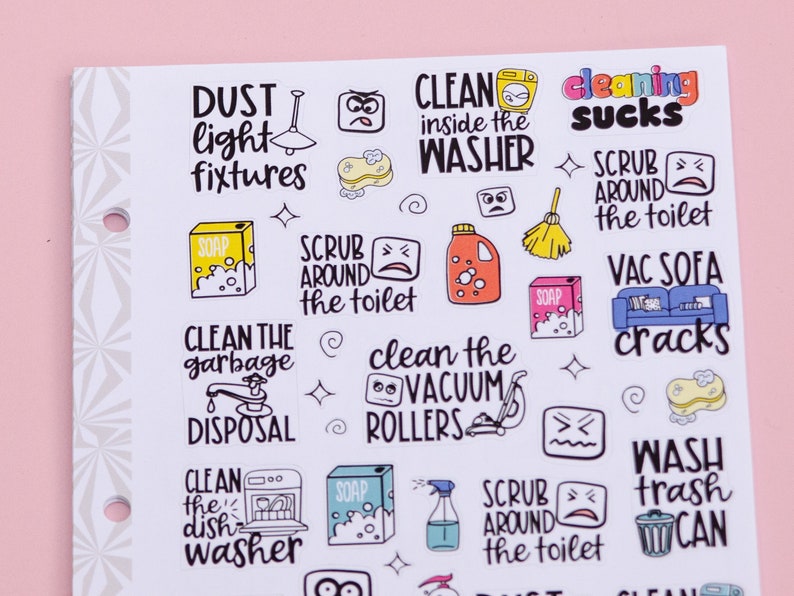 DUST
light
fixtures
CLEAN
inside the
WASHER
cleaning
SUCKS
SCRUB
AROUND
the toilet
SOAP
SCRUB
AROUND
the toilet
SOAP
VAC SOFA
cracks
CLEAN THE
garbage
DISPOSAL
clean the
VACUUM
ROLLERS
CLEAN
the
dish-
washer
SOAP
SCRUB
AROUND
the toilet
WASH
trash
CAN
DUST
CLEAN